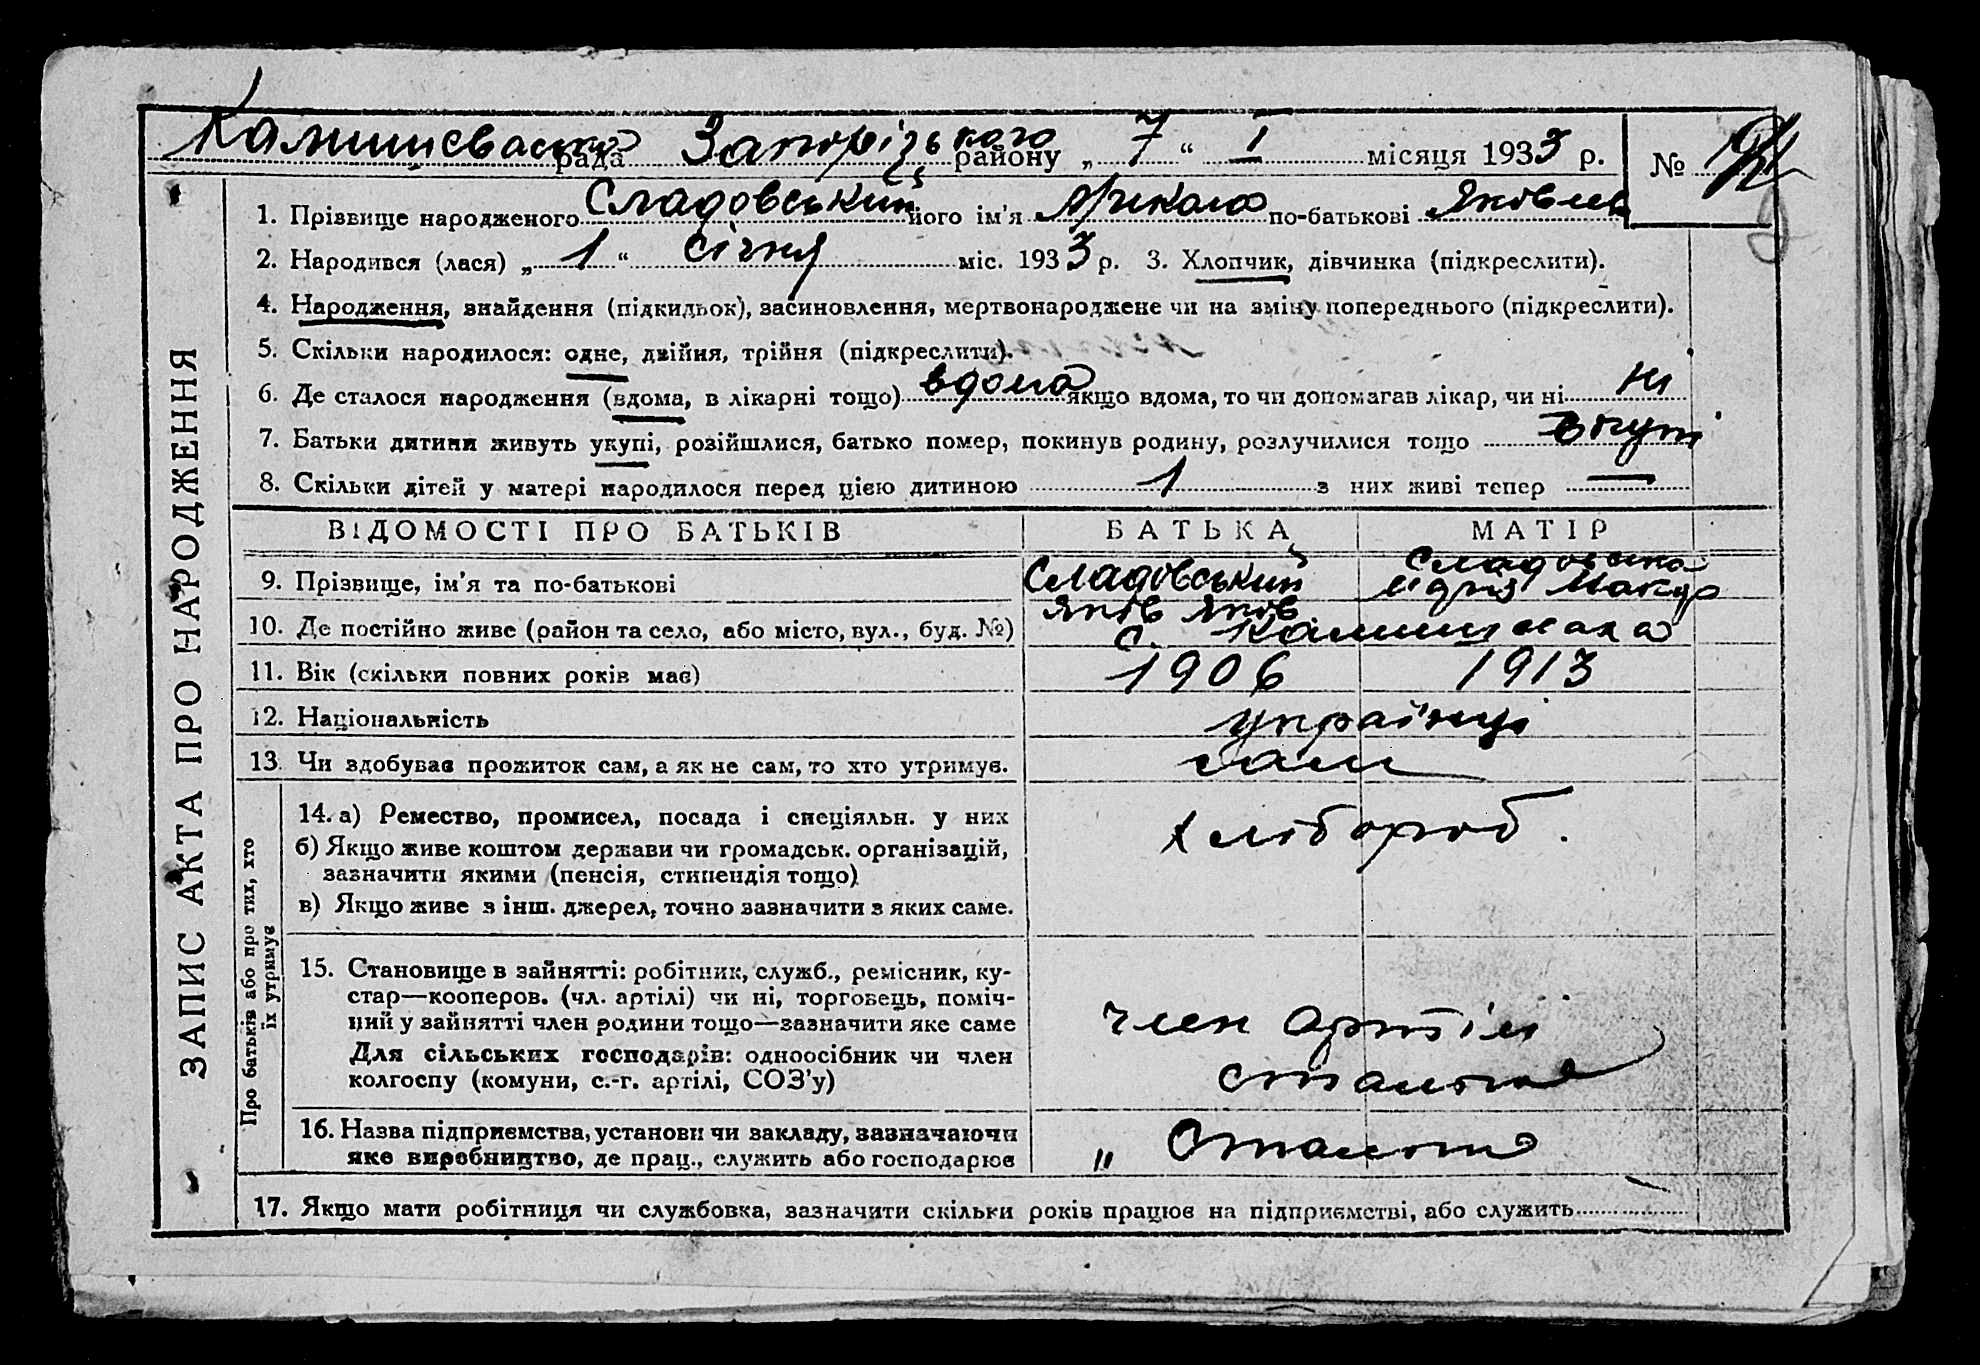 Камишеваська рада Запорізького району „ 7 “ I місяця 1933 р. №
1. Прізвище народженого Сладовський його ім'я Микола по-батькові Яковлев
2. Народився (лася) „ 1 “ січня міс. 1933 р. 3. Хлопчик, дівчинка (підкреслити).
4. Народження, знайдення (підкидьок), засиновлення, мертвонароджене чи на зміну попереднього (підкреслити).
5. Скільки народилося: одне, двійня, трійня (підкреслити).
6. Де сталося народження (вдома, в лікарні тощо) вдома якщо вдома, то чи допомагав лікар, чи ні ні
7. Батьки дитини живуть укупі, розійшлися, батько помер, покинув родину, розлучилися тощо вкупі
8. Скільки дітей у матері народилося перед цією дитиною 1 з них живі тепер —
ВІДОМОСТІ ПРО БАТЬКІВ БАТЬКА МАТІР
9. Прізвище, ім'я та по-батькові Сладовський Яків Яків Сладовська Макар
10. Де постійно живе (район та село, або місто, вул., буд. №) с.
11. Вік (скільки повних років має) 1906 1913
12. Національність українці
13. Чи здобуває прожиток сам, а як не сам, то хто утримує. сам
14. а) Ремество, промисел, посада і спеціяльн. у них хлібороб.
б) Якщо живе коштом держави чи громадськ. організацій,
зазначити якими (пенсія, стипендія тощо)
в) Якщо живе з інш. джерел, точно зазначити з яких саме.
15. Становище в зайнятті: робітник, служб., ремісник, ку-
стар—кооперов. (чл. артілі) чи ні, торговець, поміч-
ний у зайнятті член родини тощо—зазначити яке саме член артілі
Для сільських господарів: одноосібник чи член
колгоспу (комуни, с.-г. артілі, СОЗ'у)
16. Назва підприємства, установи чи закладу, зазначаючи
яке виробництво, де прац., служить або господарює "
17. Якщо мати робітниця чи службовка, зазначити скільки років працює на підприємстві, або служить
ЗАПИС АКТА ПРО НАРОДЖЕННЯ
Про батьків або про тих, хто
їх утримує